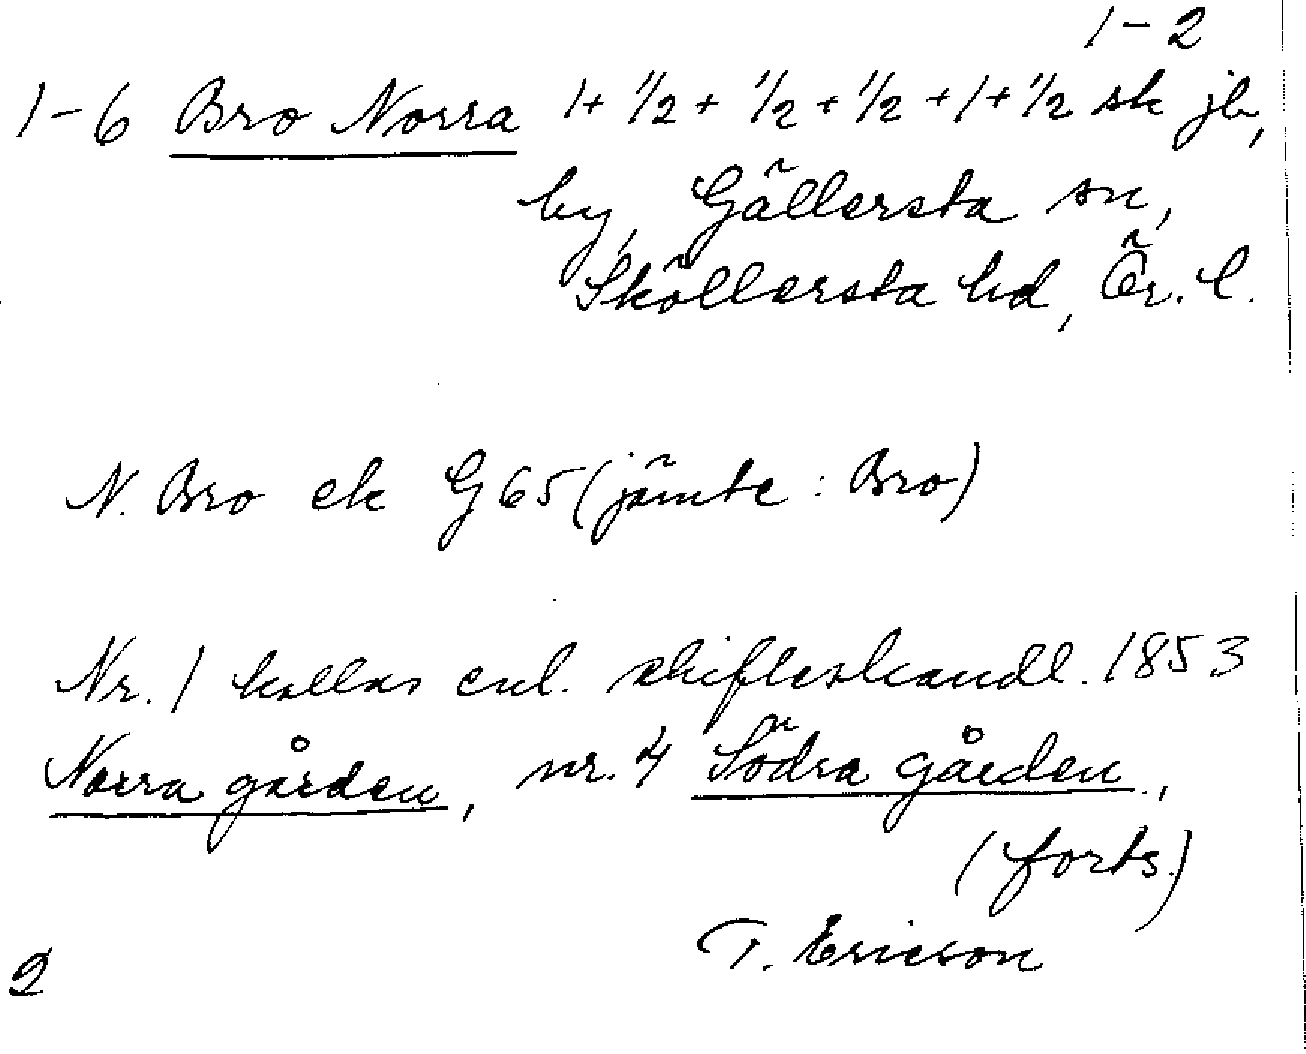 1-2
1-6 Bro Norra 1+ 1/2 + 1/2 + 1/2 + 1 + 1/2 sk jb,
by, Gällersta sn,
Sköllersta hd, Ör. l.
N. Bro ek G 65 (jämte: Bro)
Nr. 1 kallas enl. skifteshandl. 1853
Norra gården, nr. 4 Södra gården,
(forts.)
T. Ericson
2